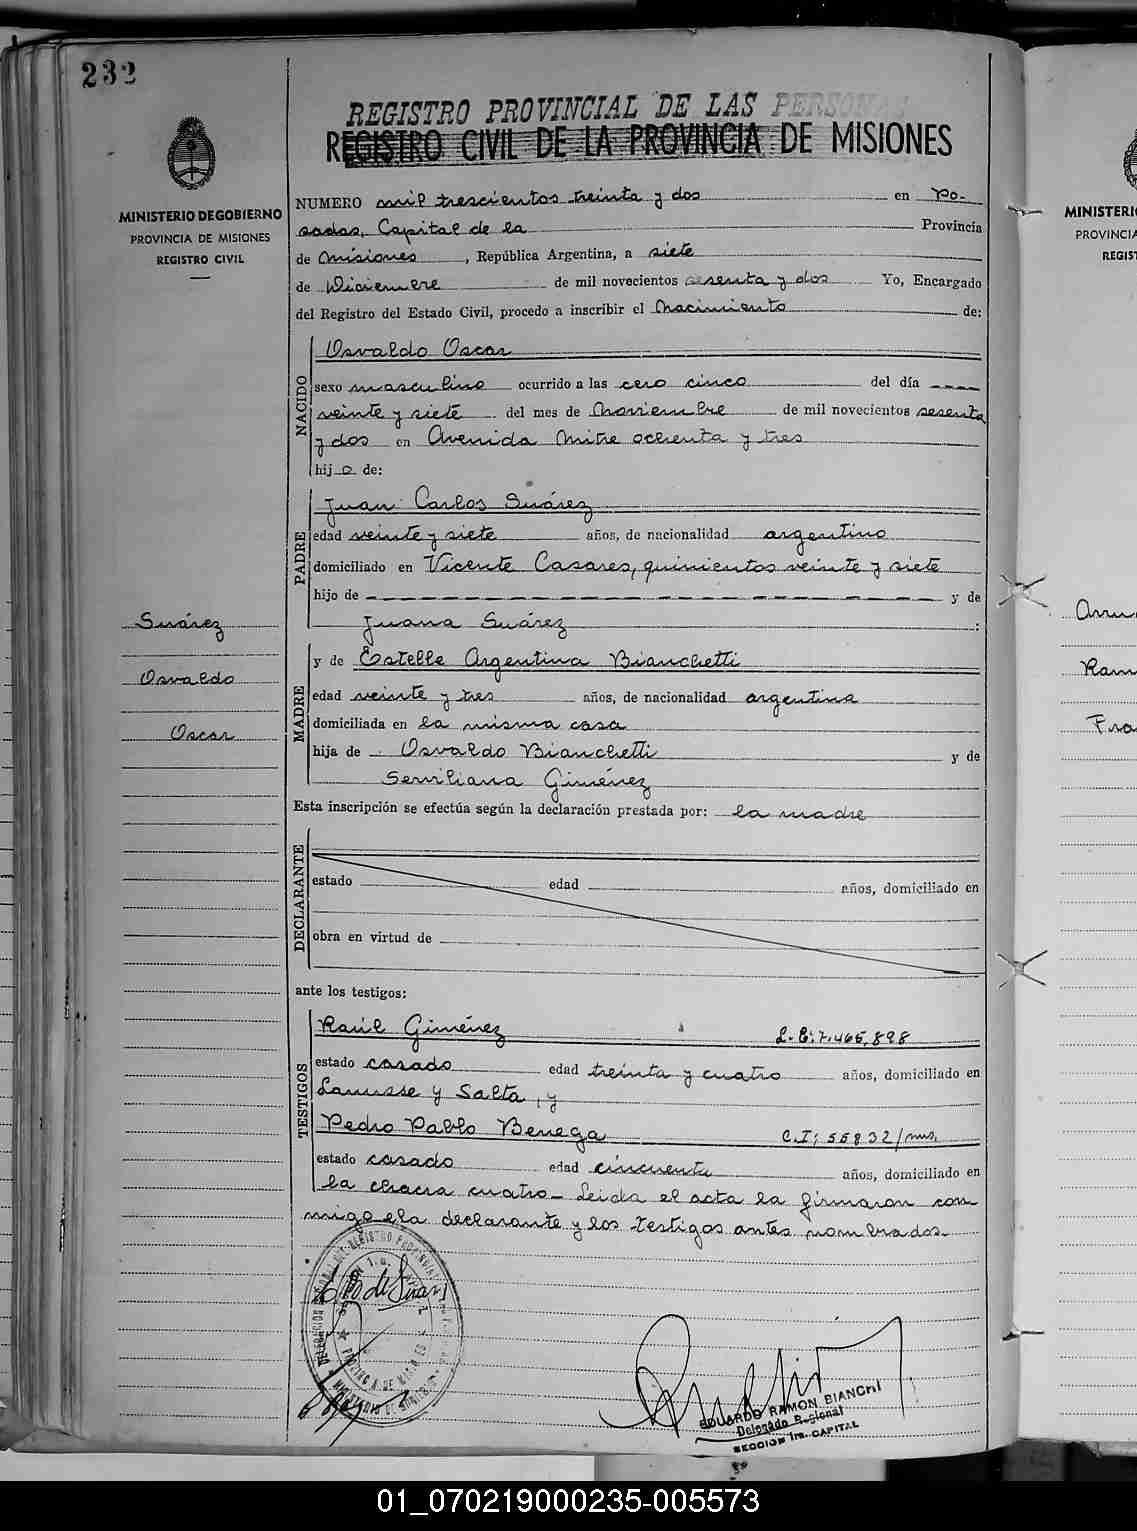 232
REGISTRO PROVINCIAL DE LAS PERSONAS
REGISTRO CIVIL DE LA PROVINCIA DE MISIONES
MINISTERIO DE GOBIERNO
PROVINCIA DE MISIONES
REGISTRO CIVIL
NUMERO mil trescientos treinta y dos en Po-
sadas, Capital de la Provincia
de Misiones, República Argentina, a siete
de Diciembre de mil novecientos sesenta y dos Yo, Encargado
del Registro del Estado Civil, procedo a inscribir el Nacimiento de:
NACIDO
Osvaldo Oscar
sexo masculino ocurrido a las cero cinco del día ----
veinte y siete del mes de Noviembre de mil novecientos sesenta
y dos en Avenida Mitre ochenta y tres
hijo de:
PADRE
Juan Carlos Suárez
edad veinte y siete años, de nacionalidad argentino
domiciliado en Vicente Casares, quinientos veinte y siete
hijo de - - - - - - - - - - - - - - - - y de
Juana Suárez :
Suárez
Osvaldo
Oscar
MADRE
y de Estelle Argentina Bianchetti
edad veinte y tres años, de nacionalidad argentina
domiciliada en la misma casa
hija de Osvaldo Bianchetti y de
Serviliana Giménez
Esta inscripción se efectúa según la declaración prestada por: la madre
DECLARANTE
estado edad años, domiciliado en
obra en virtud de
ante los testigos:
TESTIGOS
Raúl Giménez L.E: 7.465.898
estado casado edad treinta y cuatro años, domiciliado en
Lanusse y Salta, y
Pedro Pablo Benega C.I: 55832/mns.
estado casado edad cincuenta años, domiciliado en
la chacra cuatro - Leida el acta la firmaron con-
migo la declarante y los testigos antes nombrados.-
E B de Suarez
EDUARDO RAMON BIANCHI
Delegado Regional
SECCION 1ra. CAPITAL
MINISTERI
PROVINCIA
REGIST
Ram
Fra
01_070219000235-005573